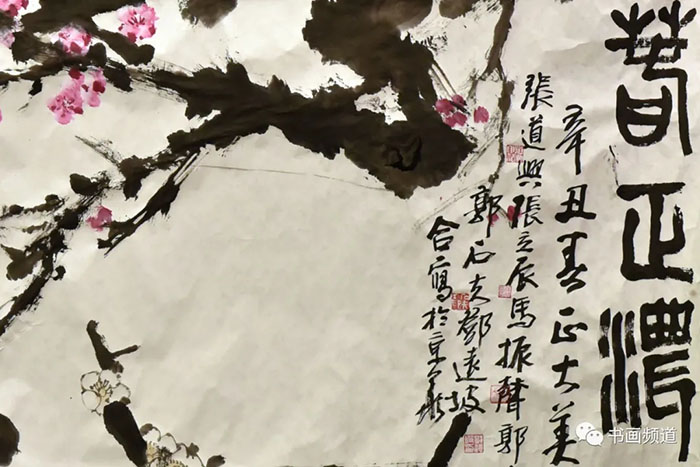 春正濃
辛丑春正大美
張道興張立辰馬振聲郭
郭石夫鄧遠坡
合寫於京
书画频道